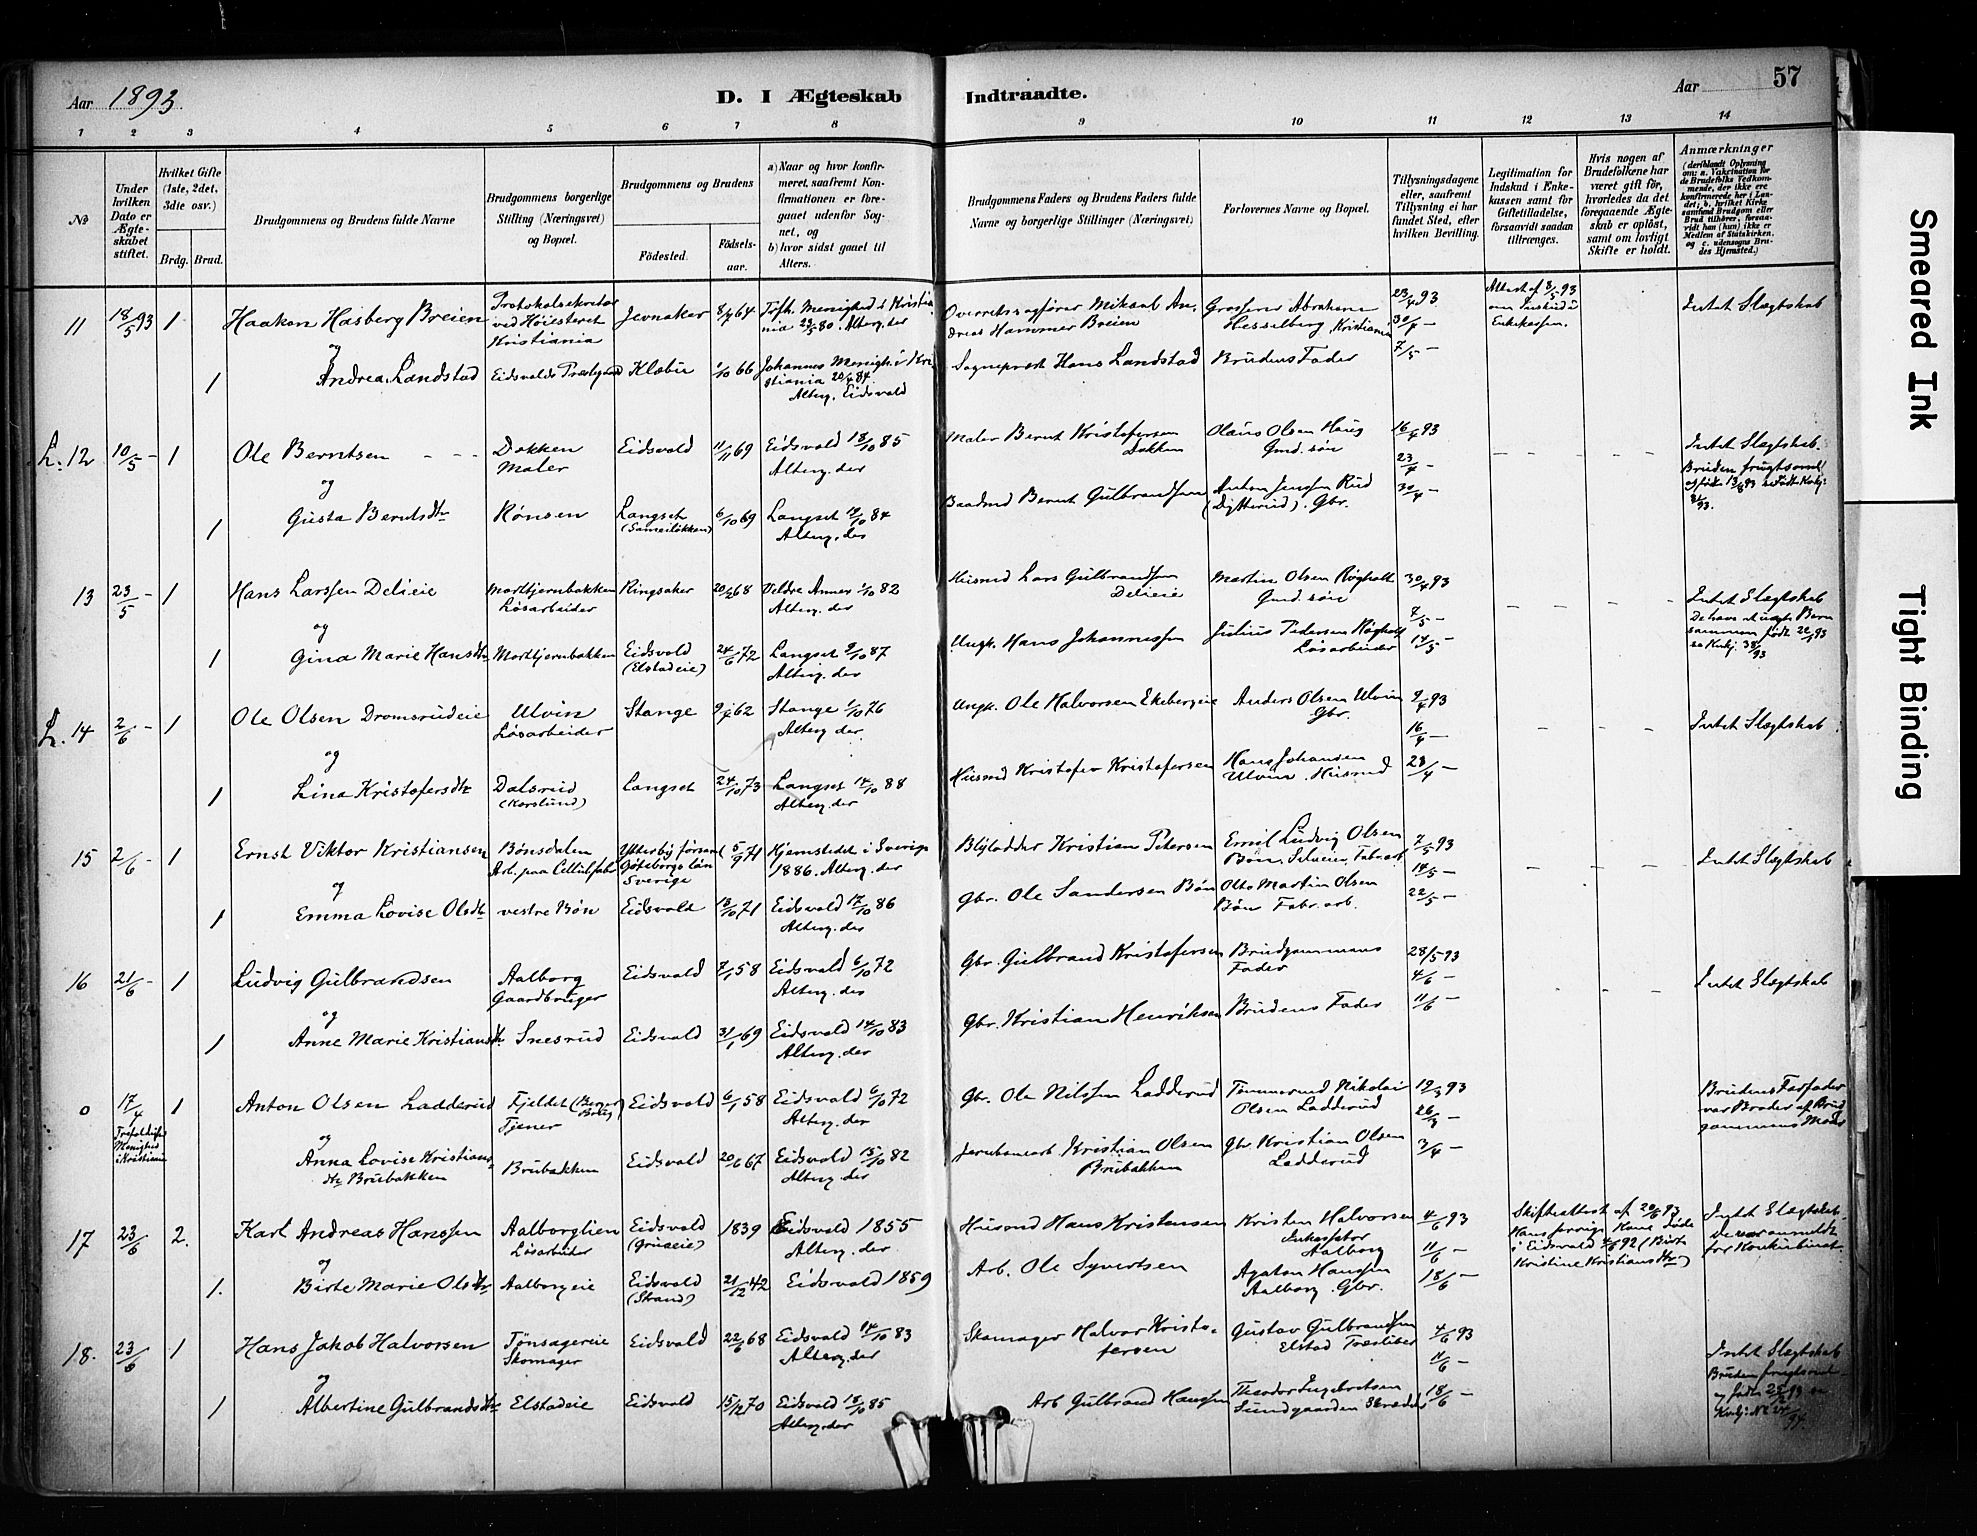 Aar 1893.
D. I Ægteskab Indtraadte.
Aar 57
1 2 3 4 5 6 7 8 9 10 11 12 13 14
No
Under hvilken Dato er Ægteskabet stiftet.
Hvilket Gifte (1ste, 2det, 3die osv.)
Brdg. Brud.
Brudgommens og Brudens fulde Navne
Brudgommens borgerlige Stilling (Næringsvei) og Bopæl.
Brudgommens og Brudens
Födested.
Födsels-aar.
a) Naar og hvor konfirmeret, saafremt Konfirmationen er foregaaet udenfor Sognet, og
b) hvor sidst gaaet til Alters.
Brudgommens Faders og Brudens Faders fulde Navne og borgerlige Stillinger (Næringsvei)
Forlovernes Navne og Bopæl.
Tillysningsdagene eller, saafremt Tillysning ei har fundet Sted, efter hvilken Bevilling.
Legitimation for Indskud i Enkekassen samt for Giftetilladelse, forsaavidt saadan tiltrænges.
Hvis nogen af Brudefolkene har været gift för, hvorledes da det foregaaende Ægteskab er oplöst, samt om lovligt Skifte er holdt.
Anmærkninger
(deriblandt Oplysning om: a. Vakcination for de Brudefolks Vedkommende, der ikke ere konfirmerede her i Landet; b. hvilket Kirkesamfund Brudgom eller Brud tilhörer, forsaavidt han (hun) ikke er Medlem af Statskirken, og c. udensogns Brudes Hjemsted.)
11 18/5 93 1 Haakon Hasberg Breien Protokolsekretær ved Høiesteret Kristiania Jevnaker 8/7 64 Trfh. Menighed i Kristiania 23/5 80. Alterg. der Overretssagfører Mikael Andreas Hammer Breien Grosserer Abraham Hesselberg, Kristiania 23/4 93 30/4 — 7/5 — Attest af 8/5 93 om Indskud i Enkekassen. Intet Slægtskab
og
1 Andrea Landstad Eidsvolds Præstegaard Klæbu 1/10 66 Johannes Menigh. i Kristiania 20/4 84 Alterg. Eidsvold Sogneprest Hans Landstad Brudens Fader
L. 12 10/5 — 1 Ole Berntsen Dokken Maler Eidsvold 11/11 69 Eidsvold 18/10 85 Alterg. der Maler Bernt Kristofersen Dokken Olaus Olsen Haug Gmd. søn 16/4 93 23/4 — 30/4 — Intet Slægtskab. Bruden frugtsommel
og
1 Gusta Berntsdtr Rønsen Langset 6/10 69 Langset 14/10 84 Alterg. der Baadmd Bernt Gulbrandsen Anton Jensen Rud (Dytterud). Gbr.
13 23/5 — 1 Hans Larssen Delieie Mortjernbakken Løsarbeider Ringsaker 20/2 68 Veldre Annex 1/10 82 Alterg. der Husmd Lars Gulbrandsen Delieie Martin Olsen Røgholt Gmd. søn 30/4 93 7/5 — 14/5 — Intet Slægtskab De have et uægte Barn sammen født 20/1 93
og
1 Gina Marie Hansdtr Mortjernbakken Eidsvold (Elstadeie) 24/6 72 Langset 9/10 87 Alterg. der Ungk. Hans Johannessen Julius Pedersen Røgholt Løsarbeider
L. 14 2/6 — 1 Ole Olsen Dromsrudeie Ulvin Løsarbeider Stange 62 Stange 1/10 76 Alterg der Ungk. Ole Halvorsen Ekebergeie Anders Olsen Ulvin Gbr. 9/4 93 16/4 — 23/4 — Intet Slægtskab
og
1 Lina Kristofersdtr Dalsrud (Korslund) Langset 24/10 73 Langset 14/10 88 Alterg. der Husmd Kristofer Kristofersen Hans Johansen Ulvin. Husmd
15 2/6 — 1 Ernst Viktor Kristiansen Bønsdalen Arb. paa Cellulfabr Ytterby förseml Göteborgs län Sverige 5/9 71 Hjemstedet i Sverige 1886. Alterg. der Kristian Petersen Emil Ludvig Olsen Bøn. Fabr.arb 7/5 93 14/5 — 22/5 — Intet Slægtskab
og
1 Emma Lovise Olsdtr vestre Bøn Eidsvold 13/10 71 Eidsvold 17/10 86 Alterg. der Gbr. Ole Sandersen Bøn Otto Martin Olsen Bøn Fabr. arb.
16 21/6 — 1 Ludvig Gulbrandsen Aalborg Gaardbruger Eidsvold 7/1 58 Eidsvold 6/10 72 Alterg. der Gbr. Gulbrand Kristofersen Brudgommens Fader 28/5 93 4/6 — 11/6 — Intet Slægtskab
og
1 Anne Marie Kristiansdtr. Snesrud Eidsvold 31/1 69 Eidsvold 14/10 83 Alterg. der Gbr. Kristian Henriksen Brudens Fader
0 17/4 Trefoldigh. Menighed i Kristiania 1 Anton Olsen Ladderud Fjeldet Tjener Eidsvold 6/1 58 Eidsvold 6/10 72 Alterg. der Gbr. Ole Nilssen Ladderud Tømmermd Nikolai Olsen Ladderud 19/3 93 26/3 — 3/4 — Brudens Farfader var Broder af Brudgommens Moder
og
Anna Lovise Kristiansdtr Brubakken Brubakken Eidsvold 20/6 67 Eidsvold 15/10 82 Alterg. der Jernbanearb. Kristian Olsen Brubakken Gbr. Kristian Olsen Ladderud
17 23/6 2. Karl Andreas Hanssen Aalborglien Løsarbeider Eidsvold (Grueeie) 1839 Eidsvold 1855 Alterg. der Husmd Hans Kristensen Kristen Halvorsen Inkassator Aalborg 4/6 93 11/6 — 18/6 — Skifteattest af 20/6 93 Hans forrige Kone døde i Eidsvold 92 (Birte Kristine Kristiansdtr) Intet Slægtskab. De var anmeldt for Konkubinat.
og
1. Birte Marie Olsdtr Aalborgeie Eidsvold (Strand) 21/12 42 Eidsvold 1859 Arb. Ole Syvertsen Agaton Hansen Aalborg. Gbr.
18. 23/6 1 Hans Jakob Halvorsen Tønsagereie Skomager Eidsvold 22/6 68 Eidsvold 14/10 83 Alterg. der Skomager Halvor Kristofersen Gustav Gulbrandsen Elstad Træsliber 4/6 93 11/6 — 18/6 — Intet Slægtskab Bruden frugtsom
og
1 Albertine Gulbrandsdtr Elstadeie Eidsvold 15/12 70 Eidsvold 18/10 85 Alterg. der Arb Gulbrand Hansen Theodor Ingebretsen Sundgaarden Skrædder
Smeared Ink
Tight Binding